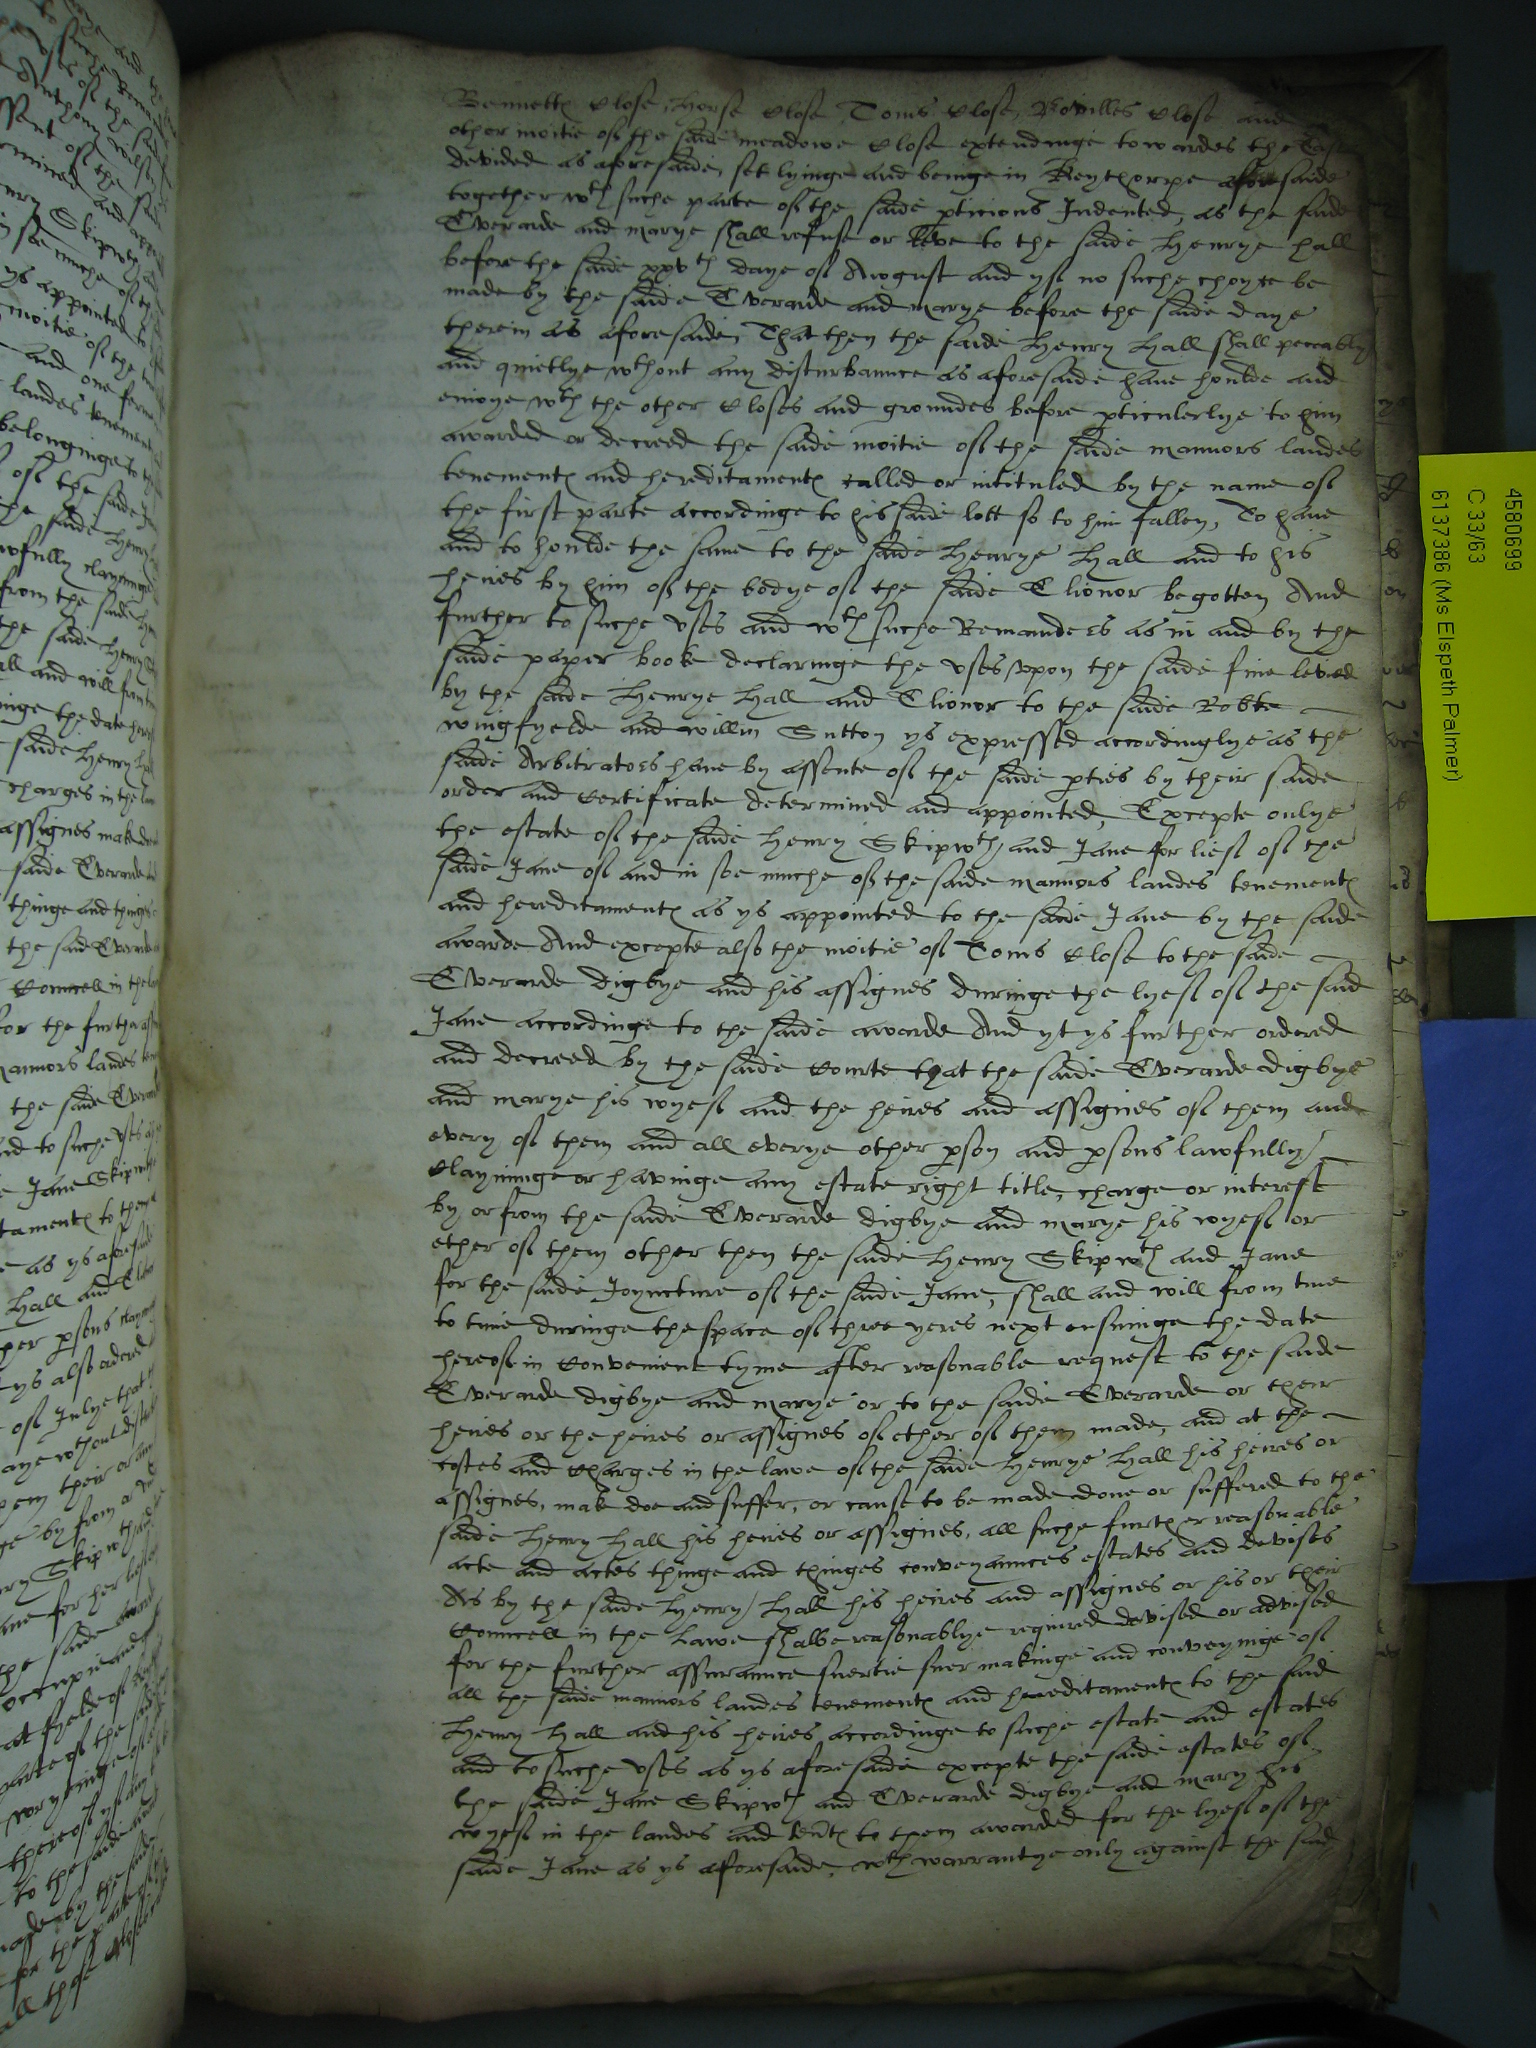 Bennettes Close, Horse Close Toms Close, Close and
other moitie of the saide meadowe Close extendinge towardes the East
devided as aforesaide, set lyinge and beinge in Keythorpe aforesaide
together wth suche parte of the saide pticions Indented, as the saide
Everarde and Marye shall refuse or leve to the saide Henrye Hall
before the saide xxvth daye of August and yf no suche choyce be
made by the saide Everarde and Marye before the saide daye
therein as aforesaide, That then the saide Henry Hall shall peceably
and quietlye wthout any disturbaunce as aforesaide have houlde and
enioye wth the other Closes and groundes before pticulerlye to him
awarded or decreed the saide moitie of the saide mannors landes
tenementes and hereditamentes called or intituled by the name of
the first parte accordinge to his saide lott so to him fallen, To have
and to houlde the same to the saide Henrye Hall and to his
heires by him of the bodye of the saide Elionor begotten And
further to suche uses and wth suche Remainders as in and by the
saide paper booke declaringe the uses upon the saide fine levied
by the saide Henrye Hall and Elionor to the saide Robte
Wingfyelde and Willm Sutton ys expressed accordinglye as the
saide Arbitrators have by assente of the saide pties by their saide
order and Certificate determined and appointed, Excepte onlye
the estate of the saide Henry Skipwth and Jane for lief of the
saide Jane of and in soe muche of the saide mannors landes tenementes
and hereditamentes as ys appointed to the saide Jane by the saide
awarde And excepte also the moitie of Toms Close to the saide
Everarde Digbye and his assignes duringe the lyef of the said
Jane accordinge to the saide awarde And yt ys further ordered
and decreed by the saide Courte that the saide Everarde Digbye
and Marye his wyef and the heires and assignes of them and
every of them and all everye other pson and psons lawfully
Clayminge or havinge any estate right title, charge or interest
by or from the saide Everarde Digbye and Marye his wyef or
ether of them other then the saide Henry Skipwth and Jane
for the saide Joyncture of the saide Jane, shall and will from time
to time duringe the space of three yeres next ensuinge the date
hereof in Convenient tyme after reasonable request to the saide
Everarde Digbye and Marye or to the saide Everarde or their
heires or the heires or assignes of ether of them made, and at the
costes and Charges in the lawe of the saide Henrye Hall his heires or
assignes, mak doe and suffer, or cause to be made done or suffered to the
saide Henry Hall his heires or assignes, all suche further reasonable
acte and actes thinge and thinges conveyaunces estates and devises
As by the saide Henry Hall his heires and assignes or his or their
Councell in the Lawe shalbe reasonablye required devised or advised
for the further assuraunce suertie suer makinge and conveyinge of
all the saide mannors landes tenementes and hereditamentes to the said
Henry Hall and his heires accordinge to suche estate and estates
and to suche uses as ys aforesaide excepte the saide estates of
the saide Jane Skipwth and Everarde Digbye and Mary his
wyef in the landes and tentes to them awarded for the lyef of the
saide Jane as ys aforesaide, wth warrantye only against the said
4580699
C 33/63
6137386 (Ms Elspeth Palmer)